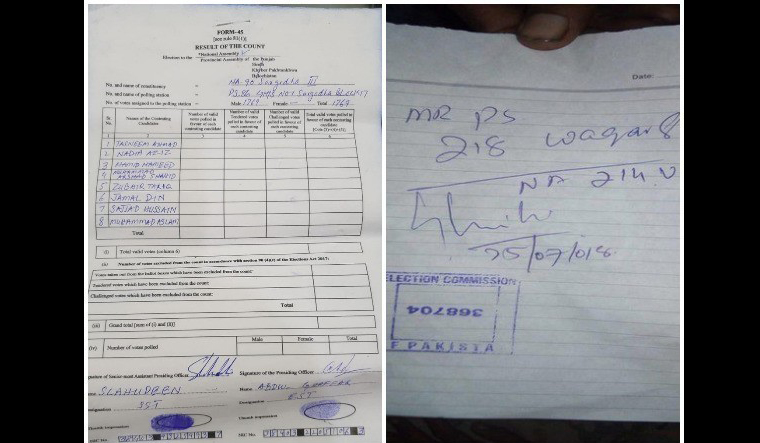 FORM-45
[see rule 81(1)]
RESULT OF THE COUNT
*National Assembly
Election to the Provincial Assembly of the Punjab
Sindh
Khyber Pakhtunkhwa
Balochistan
No. and name of constituency = NA-90 Sargodha III
No. and name of polling station = No 1 Sargodha
No. of votes assigned to the polling station = Male 1769 Female Total 1769
Sr. No. Names of the Contesting Candidates Number of valid votes polled in favour of each contesting candidate Number of valid Tendered votes polled in favour of each contesting candidate Number of valid Challenged votes polled in favour of each contesting candidate Total valid votes polled in favour of each contesting candidate
1 2 3 4 5 6
1 TASNEEM AHMAD
2 NADIA AZIZ
3 HAMID HAMEED
4 MUHAMMAD ARSHAD SHAHID
5 ZUBAIR TARIQ
6 JAMAL DIN
7 SAJJAD HUSSAIN
8 MUHAMMAD ASLAM
Total
(i) Total valid votes (column 6)
(ii) Number of votes excluded from the count in accordance with section 90 of the Elections Act 2017:
Votes taken out from the ballot boxes which have been excluded from the count:
Tendered votes which have been excluded from the count:
Challenged votes which have been excluded from the count:
Total
(iii) Grand total [sum of (i) and (ii)]
Male Female Total
(iv) Number of votes polled
Signature of Senior-most Assistant Presiding Officer Signature of the Presiding Officer
SLAHUDEEN Name ABDUL
Designation SST Designation EST
Thumb impression Thumb impression
Date:
MR PS
218 waqar
NA 214
25/07/018
ELECTION COMMISSION
368704
F PAKISTA